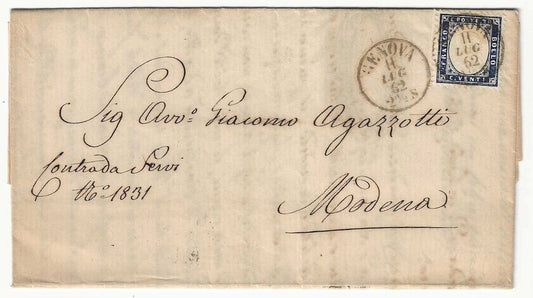 GENOVA
11
LUG
62
GENOVA
11
LUG
62
C. POSTALE
FRANCO
BOLLO
C. VENTI
Sig Avv.o Giacomo Agazzotti
Contrada Servi
No. 1831
Modena